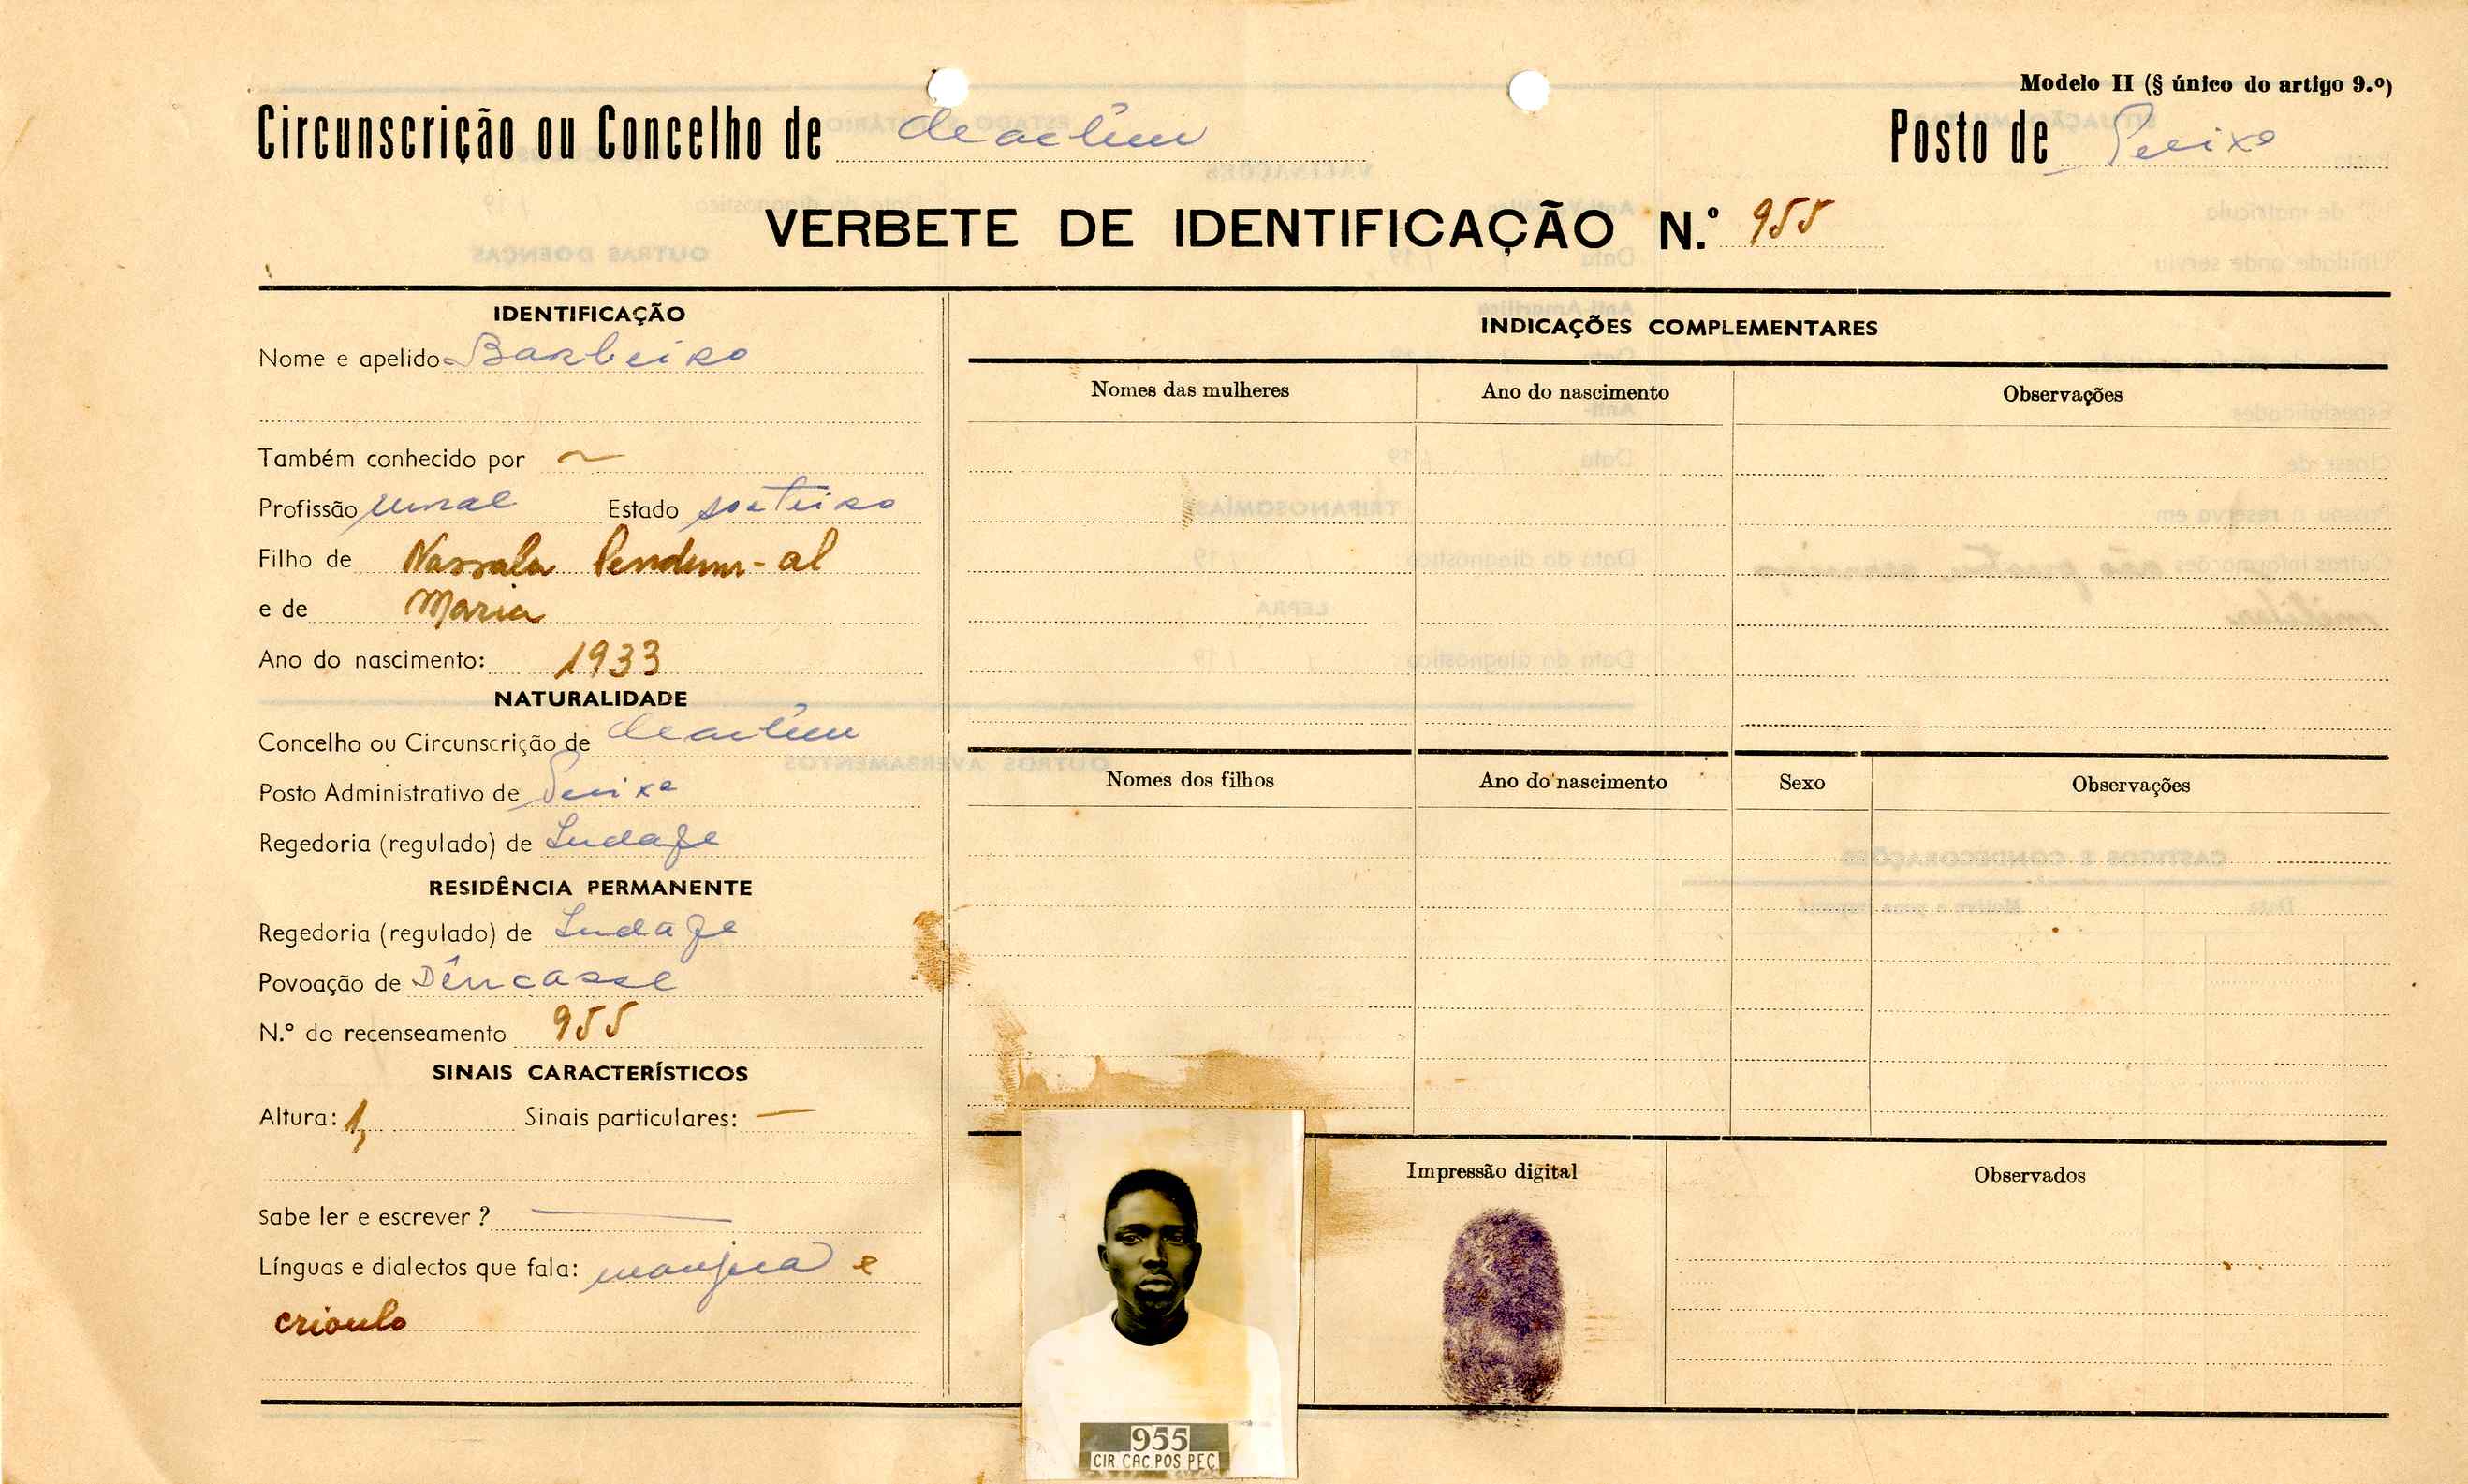 Modelo II (§ único do artigo 9.º)
Circunscrição ou Concelho de Posto de
VERBETE DE IDENTIFICAÇÃO N.º 955
IDENTIFICAÇÃO
Nome e apelido Barbeiro
Também conhecido por ~
Profissão rural Estado solteiro
Filho de
e de Maria
Ano do nascimento: 1933
NATURALIDADE
Concelho ou Circunscrição de
Posto Administrativo de
Regedoria (regulado) de
RESIDÊNCIA PERMANENTE
Regedoria (regulado) de
Povoação de Dêncasse
N.º do recenseamento 955
SINAIS CARACTERÍSTICOS
Altura: 1, Sinais particulares: —
Sabe ler e escrever ? —
Línguas e dialectos que fala: manjaca e
crioulo
INDICAÇÕES COMPLEMENTARES
Nomes das mulheres Ano do nascimento Observações
Nomes dos filhos Ano do nascimento Sexo Observações
Impressão digital Observados
955
CIR CAC. POS PEC